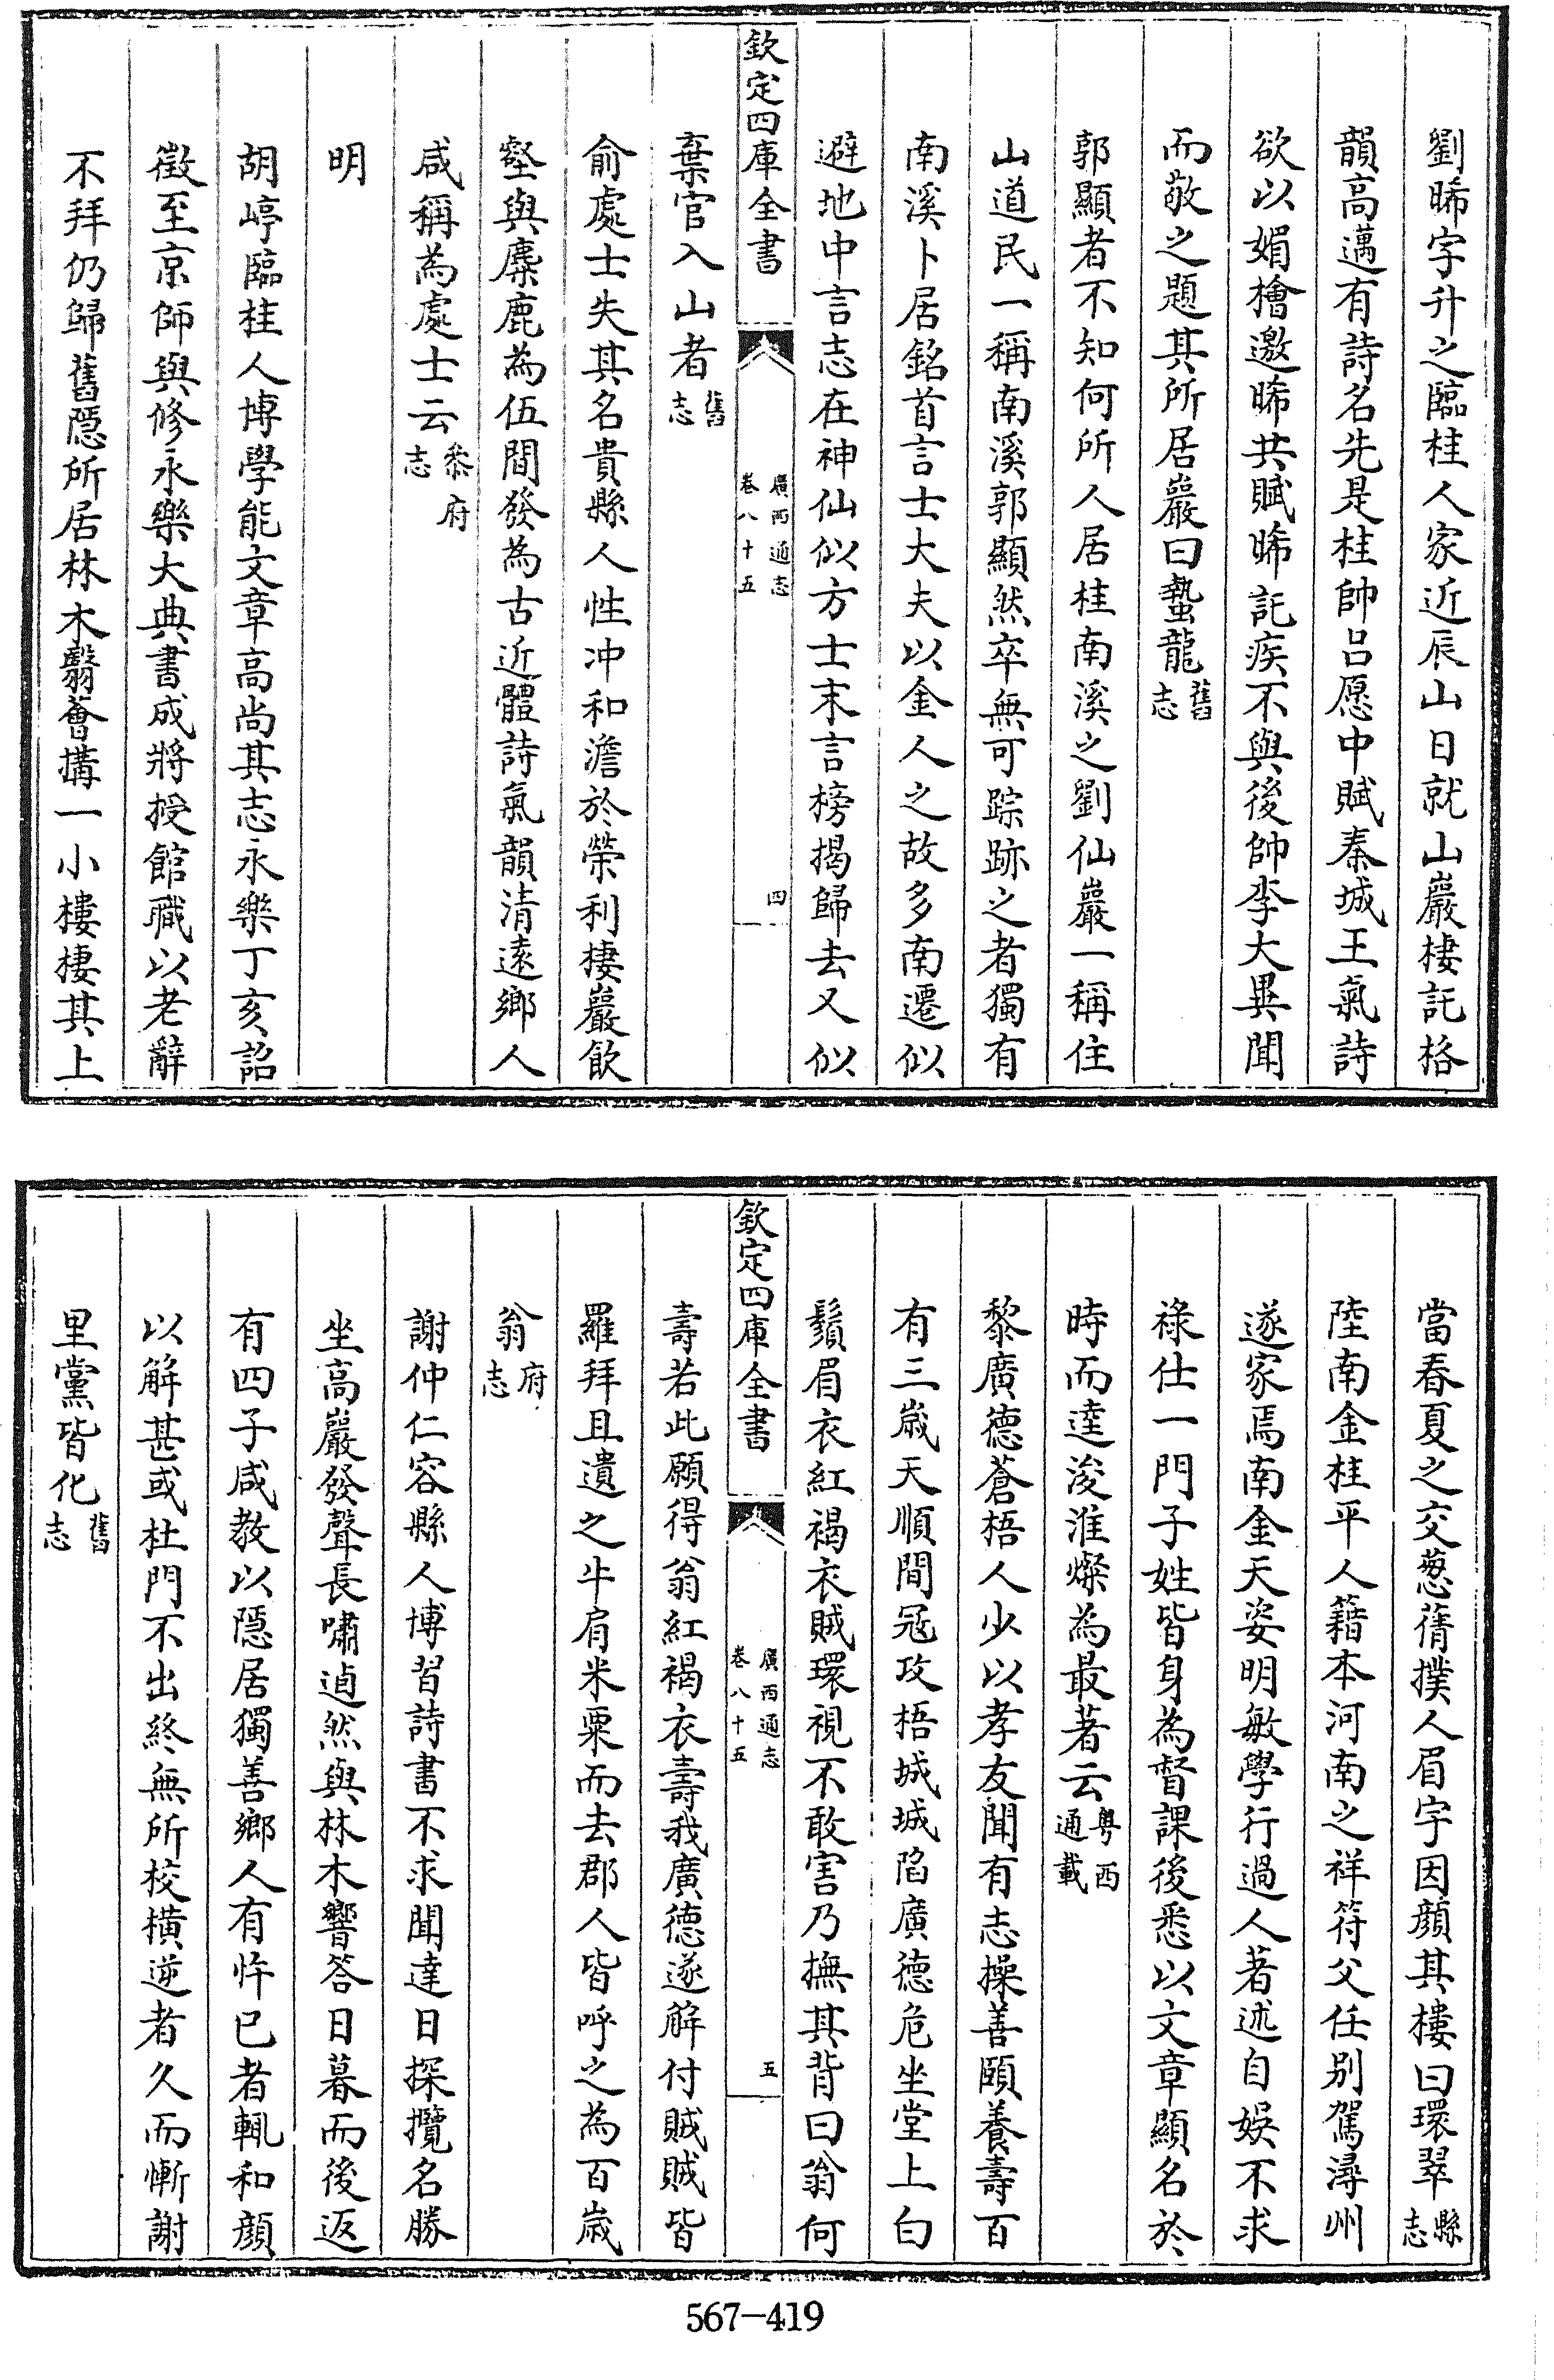 劉晞字升之臨桂人家近辰山日就山巖棲託格
韻高邁有詩名先是桂帥呂愿中賦秦城王氣詩
欲以媚檜邀晞共賦晞託疾不與後帥李大異聞
而敬之題其所居巖曰蟄龍舊志
郭顯者不知何所人居桂南溪之劉仙巖一稱住
山道民一稱南溪郭顯然卒無可踪跡之者獨有
南溪卜居銘首言士大夫以金人之故多南遷似
避地中言志在神仙似方士末言榜揭歸去又似
欽定四庫全書
廣西通志
卷八十五
四
棄官入山者舊志
俞處士失其名貴縣人性冲和澹於榮利棲巖飲
壑與麋鹿為伍間發為古近體詩氣韻清遠鄉人
咸稱為處士云叅府志
明
胡㟁臨桂人博學能文章高尚其志永樂丁亥詔
徵至京師與修永樂大典書成將授館職以老辭
不拜仍歸舊隱所居林木翳薈搆一小樓棲其上
當春夏之交葱蒨撲人眉宇因顏其樓曰環翠縣志
陸南金桂平人籍本河南之祥符父任別駕潯州
遂家焉南金天姿明敏學行過人著述自娛不求
祿仕一門子姓皆身為督課後悉以文章顯名於
時而逵浚淮燦為最著云粵西通載
黎廣德蒼梧人少以孝友聞有志操善頤養壽百
有三歲天順間冦攻梧城城陷廣德危坐堂上白
鬚眉衣紅褐衣賊環視不敢害乃撫其背曰翁何
欽定四庫全書
廣西通志
卷八十五
五
壽若此願得翁紅褐衣壽我廣德遂解付賊賊皆
羅拜且遺之牛肩米粟而去郡人皆呼之為百歲
翁府志
謝仲仁容縣人博習詩書不求聞達日探攬名勝
坐高巖發聲長嘯逌然與林木響答日暮而後返
有四子咸教以隱居獨善鄉人有忤已者輒和顏
以解甚或杜門不出終無所校橫逆者久而慚謝
里黨皆化舊志
567-419